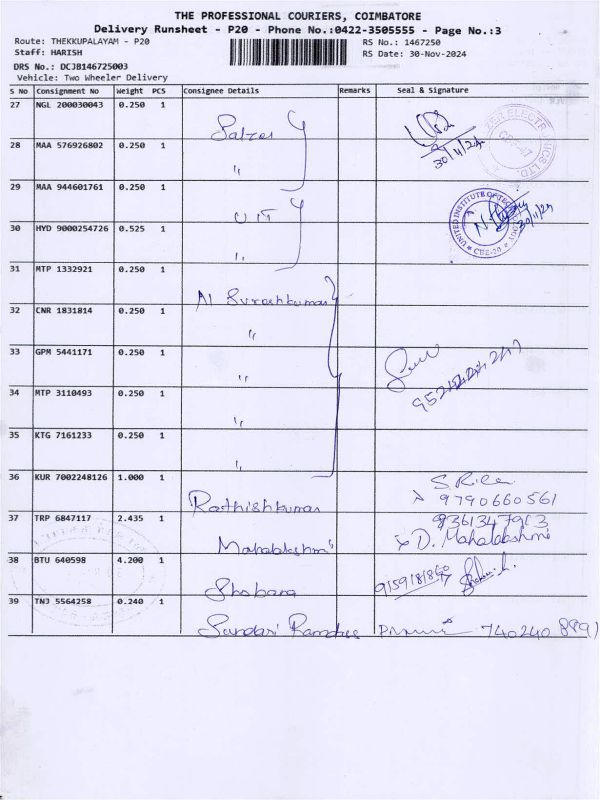 THE PROFESSIONAL COURIERS, COIMBATORE
Delivery Runsheet - P20 - Phone No.:0422-3505555 - Page No.:3
Route: THEKKUPALAYAM - P20
RS No.: 1467250
Staff: HARISH
RS Date: 30-Nov-2024
DRS No.: DCJB146725003
Vehicle: Two Wheeler Delivery
S No Consignment No Weight PCS Consignee Details Remarks Seal & Signature
27 NGL 200030043 0.250 1
Salzer
30/11/24
28 MAA 576926802 0.250 1
"
29 MAA 944601761 0.250 1
UIT
UNITED INSTITUTE OF TECHNOLOGY
CBE-20
30/11/24
30 HYD 9000254726 0.525 1
"
31 MTP 1332921 0.250 1
Al Sureshkumar
32 CNR 1831814 0.250 1
"
33 GPM 5441171 0.250 1
"
34 MTP 3110493 0.250 1
"
35 KTG 7161233 0.250 1
"
36 KUR 7002248126 1.000 1
Rathishkumar
9790660561
37 TRP 6847117 2.435 1
Mahalakshmi
9361347913
D. Mahalakshmi
38 BTU 640598 4.200 1
Shobana
39 TNJ 5564258 0.240 1
Sundari
740240 8891